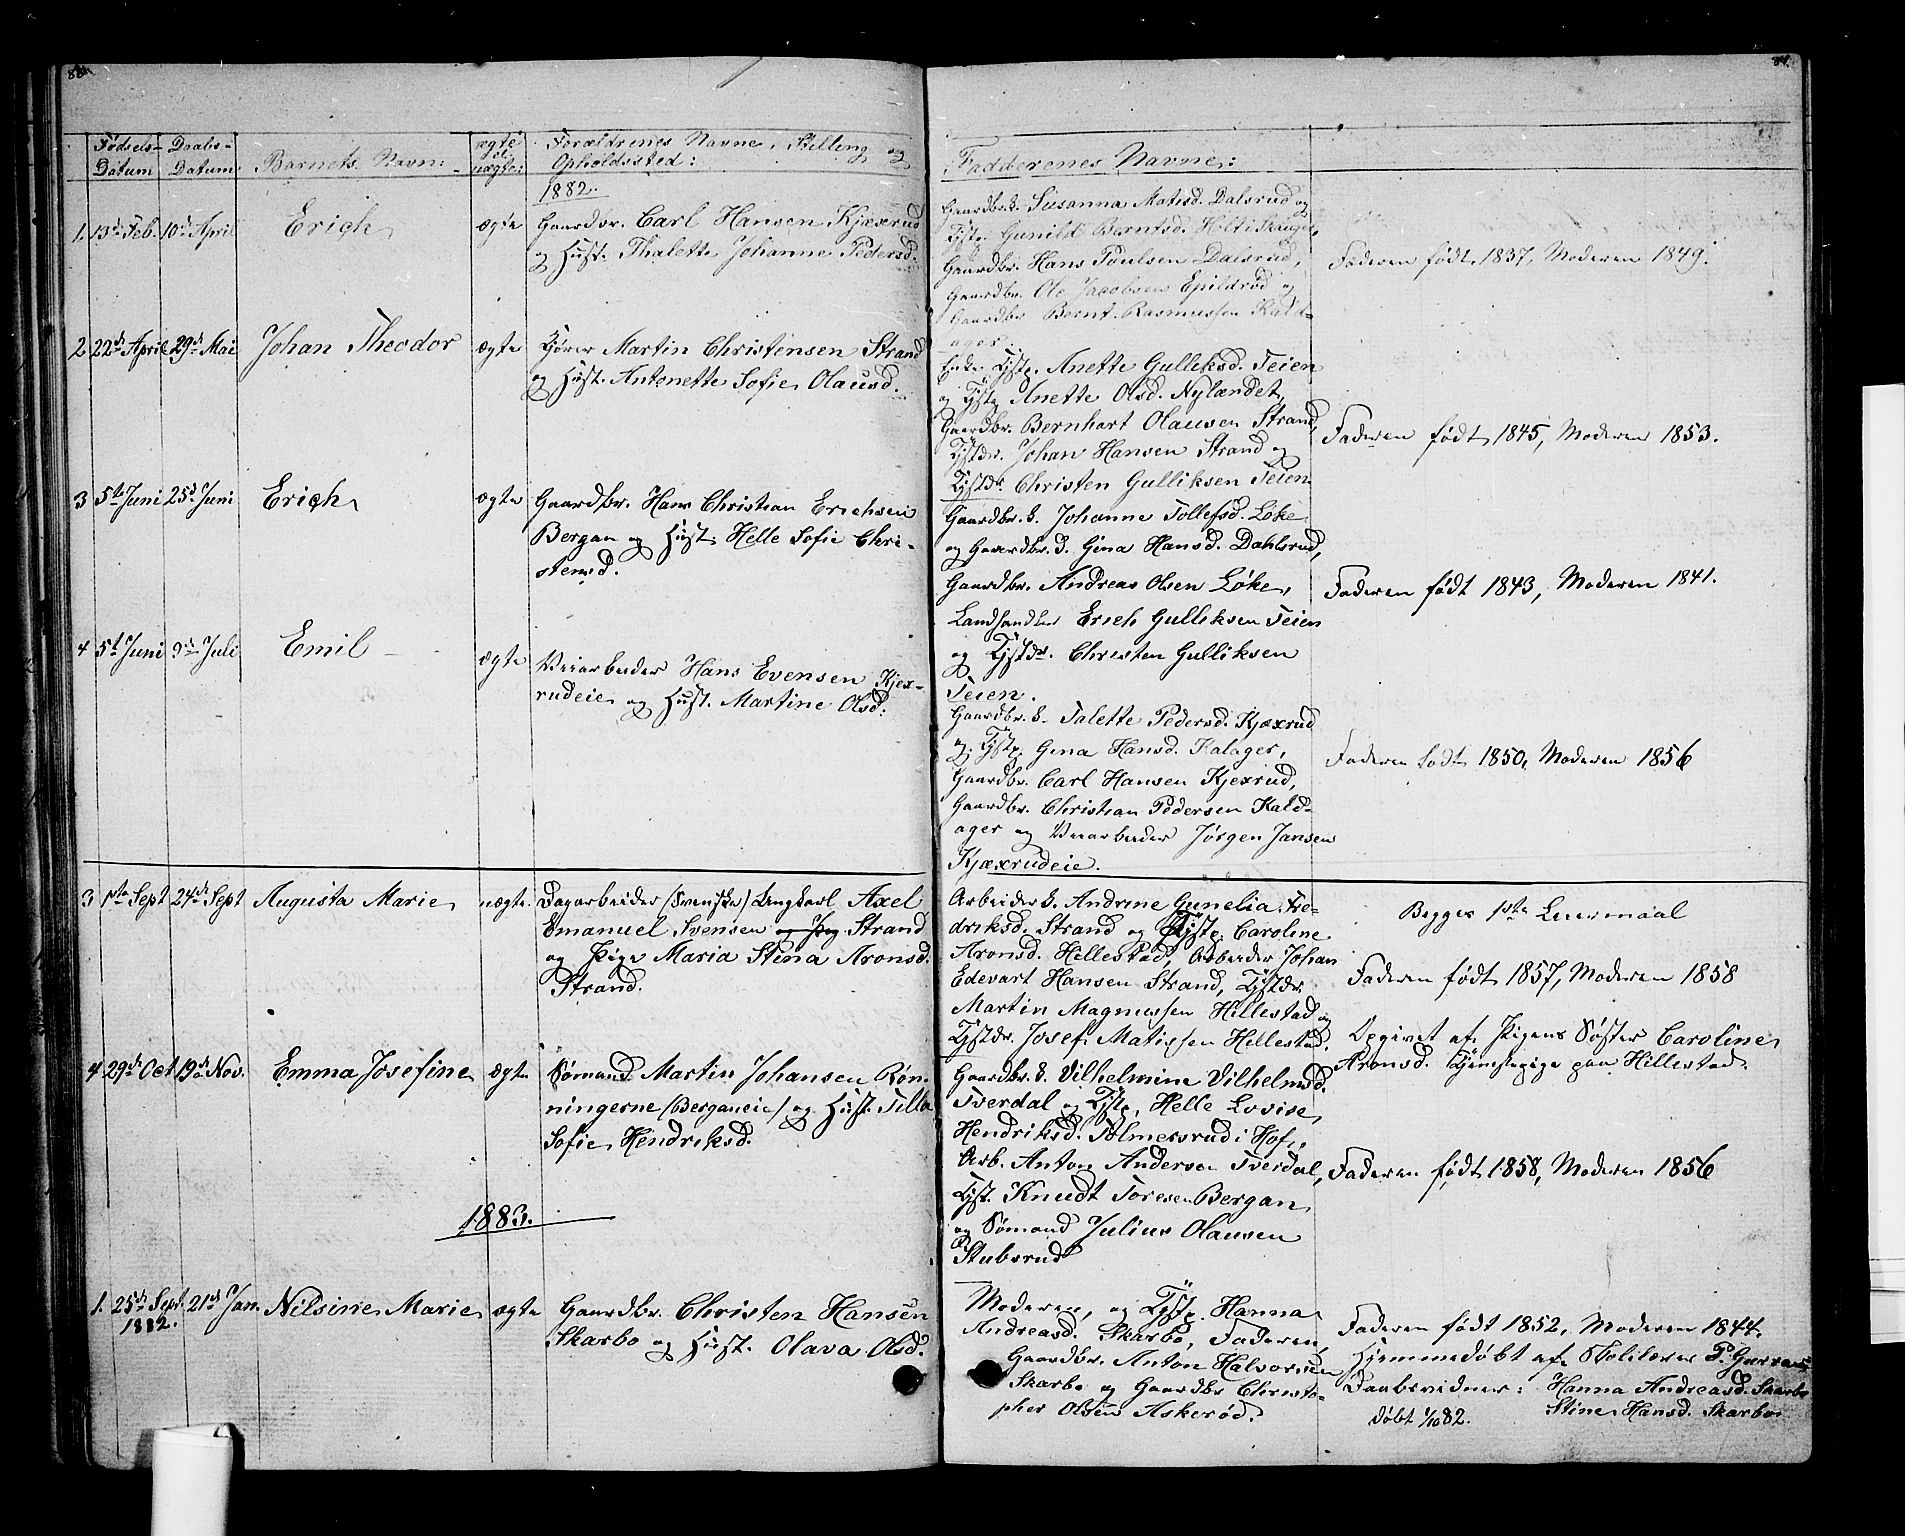 84.
Fødsels- Daabs- ægte Forældrenes Navne, Stilling og
Datum Datum Barnets Navn: uægte: Opholdssted:
1882.
1. 13de Feb. 10de April Erich ægte Gaardbr. Carl Hansen Kjæxrud
og Hust. Thalette Johanne Pedersd.
2 22de April 29de Mai Johan Theodor ægte Kjører Martin Christensen Strand
og Hust. Antonette Sofie Olausd.
3 5te Juni 25de Juni Erich ægte Gaardbr. Hans Christian Erichsen
Bergan og Hust. Helle Sofie Chri-
stensd.
4 5te Juni 9de Juli Emil ægte Veiarbeider Hans Evensen Kjex-
rudeie og Hust. Martine Olsd:
3 1ste Sept 24de Sept Augusta Marie uægte. Dagarbeider (Svenske) Ungkarl Axel
Emanuel Svensen Strand
og Pige Maria Stina Aronsd.
Strand.
4 29de Oct 19de Nov. Emma Josefine ægte Sømand Martin Johansen Røn-
ningerne (Berganeie) og Hust. Tilla
Sofie Hendriksd.
1883.
1. 25de Sept. 21de Jan. Nilsine Marie ægte Gaardbr. Christen Hansen
1882. Skarbo og Hust. Olava Olsd.
Fadderenes Navne:
Gaardbr.k. Susanna Matisd. Dalsrud og
Tjstp. Gunild Berntsd. Holt i Skauger,
Gaardbr. Hans Poulsen Dalsrud,
Gaardbr. Ole Jacobsen Epildrød og
Gaardbr Bernt Rasmussen Kald-
ager.
Faderen født 1837, Moderen 1849.
Enke Tjstp. Anette Gulliksd. Teien
og Tjstp Anette Olsd. Nylændet,
Gaardbr. Bernhart Olausen Strand,
Tjstdr. Johan Hansen Strand og
Tjstdr. Christen Gulliksen Teien
Faderen født 1845, Moderen 1853.
Gaardbr.k. Johanne Tollefsd. Løke
og Gaardbr.d. Gina Hansd. Dahlsrud,
Gaardbr. Andreas Olsen Løke,
Landhandler Erich Gulliksen Teien
og Tjstdr. Christen Gulliksen
Teien.
Faderen født 1843, Moderen 1841.
Gaardbr.k. Talette Pedersd. Kjæxrud
og Tjstp. Gina Hansd. Kalager,
Gaardbr. Carl Hansen Kjexrud,
Gaardbr. Christian Pedersen Kald-
ager og Veiarbeider Jørgen Jansen
Kjæxrudeie.
Faderen født 1850, Moderen 1856
Arbeider k. Andrine Gunelia Fre-
driksd. Strand og Tjstp. Caroline
Aronsd. Hillestad, Arbeider Johan
Edevart Hansen Strand, Tjstdr.
Martin Magnussen Hillestad og
Tjstdr. Josef Matissen Hillestad.
Begges 1ste Leiermaal
Faderen født 1857, Moderen 1858
Opgivet af Pigens Søster Caroline
Aronsd. Tjenstepige paa Hillestad.
Gaardbr.k. Vilhelmine Vilhelmsd.
Tverdal og Tjstp. Helle Lovise
Hendriksd. Tolmersrud i Hof,
Arb. Anton Anderson Tverdal,
Tjst. Knudt Toresen Bergan
og Sømand Julius Olausen
Stubsrud
Faderen født 1858, Moderen 1856
Moderen, og Tjstp. Hanna
Andreasd. Skarbo, Faderen,
Gaardbr. Anton Halvorsen
Skarbo og Gaardbr Christo-
pher Olsen Askerød.
Faderen født 1852, Moderen 1844.
Hjemmedøbt af Skolelærer P.
Daabsvidner: Hanna Andreasd. Skarbo
døbt 1/10 82. Stine Hansd. Skarbo